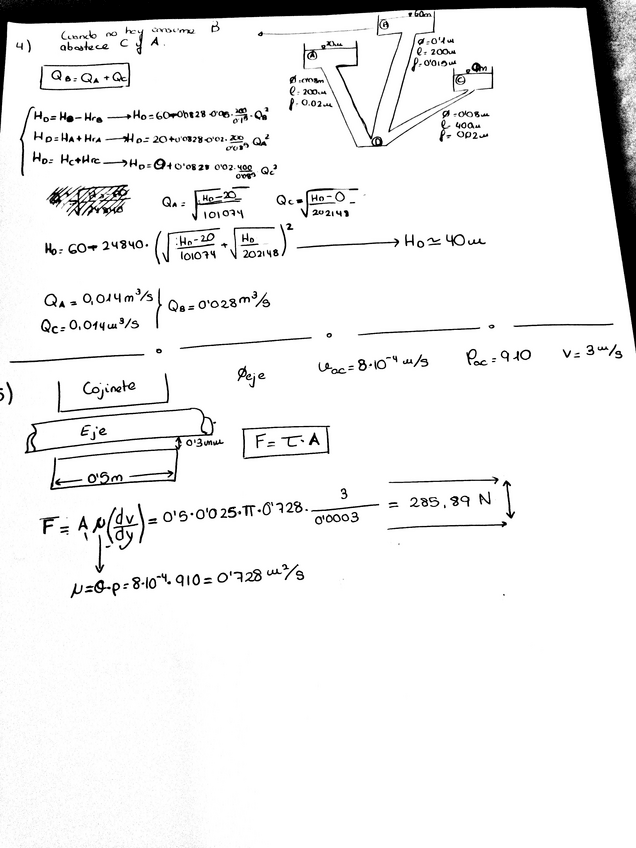 4) Cuando no hay consumo B
abastece C y A.
QB = QA + QC
HD = HB - HrB → HD = 60+0'0828·0'015· 200/0'1⁵ ·QB²
HD = HA + HrA → HD = 20+0'0828·0'02· 200/0'08⁵ QA²
HD = HC + HrC → HD = 0+0'0828 0'02· 400/0'08⁵ QC²
QA = √(HD-20/101074) QC = √(HD-0/202148)
HD = 60- 24840·(√(HD-20/101074) + √(HD/202148))² → HD ≃ 40m
QA = 0,014 m³/s
QC = 0,014 m³/s
QB = 0'028 m³/s
A
20m
l = 200m
f = 0.02m
B
60m
Ø = 0'1m
l = 200m
f = 0'015m
C
0m
Ø = 0'08m
l = 400m
f = 0'02m
D
5)
Cojinete
Øeje
νac = 8·10⁻⁴ m/s
ρac = 910
V = 3 m/s
Eje
0'3mm
0'5m
F = τ·A
F = A μ(dv/dy) = 0'5·0'025·π·0'728· 3/0'0003 = 285,89 N
μ = υ·ρ = 8·10⁻⁴·910 = 0'728 m²/s